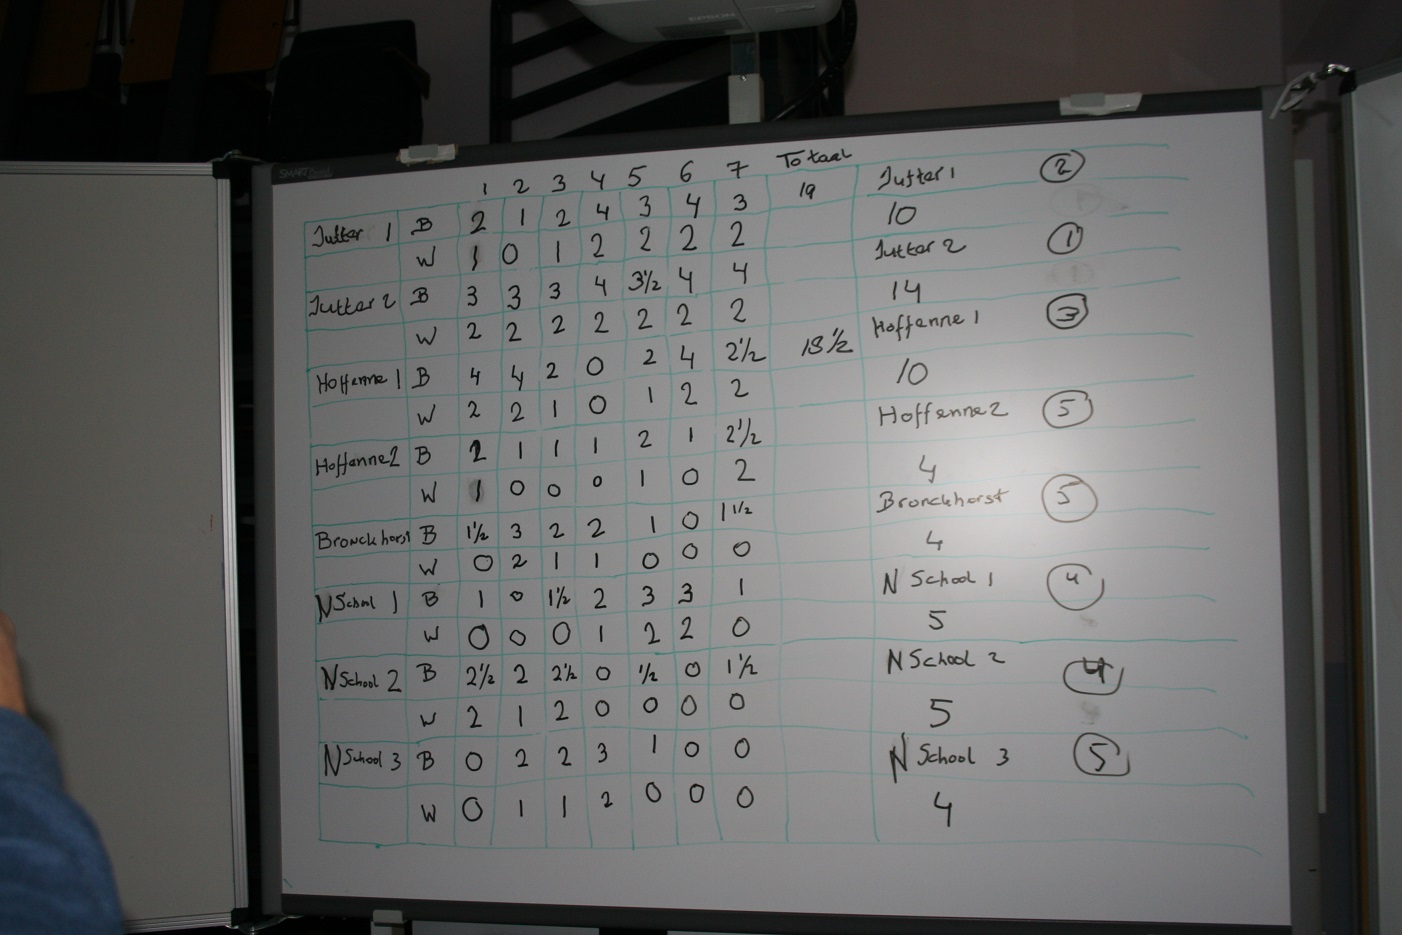 EPSON
SMART Board
1 2 3 4 5 6 7 Totaal
Jutter 1 B 2 1 2 4 3 4 3 19 Jutter 1 2
W 1 0 1 2 2 2 2 10
Jutter 2 B 3 3 3 4 3½ 4 4 Jutter 2 1
W 2 2 2 2 2 2 2 14
Hoffenne 1 B 4 4 2 0 2 4 2½ 18½ Hoffenne 1 3
W 2 2 1 0 1 2 2 10
Hoffenne 2 B 2 1 1 1 2 1 2½ Hoffenne 2 5
W 1 0 0 0 1 0 2 4
Bronckhorst B 1½ 3 2 2 1 0 1½ Bronckhorst 5
W 0 2 1 1 0 0 0 4
N School 1 B 1 0 1½ 2 3 3 1 N School 1 4
W 0 0 0 1 2 2 0 5
N School 2 B 2½ 2 2½ 0 ½ 0 1½ N School 2 4
W 2 1 2 0 0 0 0 5
N School 3 B 0 2 2 3 1 0 0 N School 3 5
W 0 1 1 2 0 0 0 4